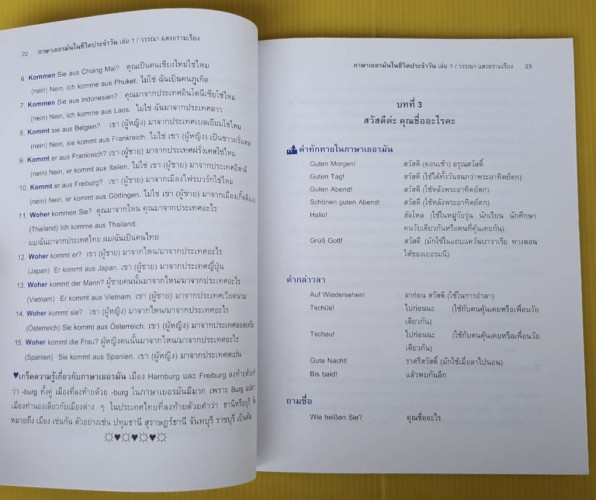 22 ภาษาเยอรมันในชีวิตประจำวัน เล่ม 1 / วรรณา แสงอร่ามเรือง
6. Kommen Sie aus Chiang Mai? คุณเป็นคนเชียงใหม่ใช่ไหม
(nein) Nein, ich komme aus Phuket. ไม่ใช่ ฉันเป็นคนภูเก็ต
7. Kommen Sie aus Indonesien? คุณมาจากประเทศอินโดนีเซียใช่ไหม
(nein) Nein, ich komme aus Laos. ไม่ใช่ ฉันมาจากประเทศลาว
8. Kommt sie aus Belgien? เขา (ผู้หญิง) มาจากประเทศเบลเยียมใช่ไหม
(nein) Nein, sie kommt aus Frankreich. ไม่ใช่ เขา (ผู้หญิง) เป็นชาวฝรั่งเศส
9. Kommt er aus Frankreich? เขา (ผู้ชาย) มาจากประเทศฝรั่งเศสใช่ไหม
(nein) Nein, er kommt aus Italien. ไม่ใช่ เขา (ผู้ชาย) มาจากประเทศอิตาลี
10. Kommt er aus Freiburg? เขา (ผู้ชาย) มาจากเมืองไฟรบวร์กใช่ไหม
(nein) Nein, er kommt aus Göttingen. ไม่ใช่ เขา (ผู้ชาย) มาจากเมือง
11. Woher kommen Sie? คุณมาจากไหน คุณมาจากประเทศอะไร
(Thailand) Ich komme aus Thailand.
ผม/ฉันมาจากประเทศไทย ผม/ฉันเป็นคนไทย
12. Woher kommt er? เขา (ผู้ชาย) มาจากไหน/มาจากประเทศอะไร
(Japan) Er kommt aus Japan. เขา (ผู้ชาย) มาจากประเทศญี่ปุ่น
13. Woher kommt der Mann? ผู้ชายคนนั้นมาจากไหน/มาจากประเทศอะไร
(Vietnam) Er kommt aus Vietnam. เขา (ผู้ชาย) มาจากประเทศเวียดนาม
14. Woher kommt sie? เขา (ผู้หญิง) มาจากไหน/มาจากประเทศอะไร
(Österreich) Sie kommt aus Österreich. เขา (ผู้หญิง) มาจากประเทศออสเตรีย
15. Woher kommt die Frau? ผู้หญิงคนนั้นมาจากไหน/มาจากประเทศอะไร
(Spanien) Sie kommt aus Spanien. เขา (ผู้หญิง) มาจากประเทศสเปน
♥เกร็ดความรู้เกี่ยวกับภาษาเยอรมัน เมือง Hamburg และ Freiburg ลงท้ายด้วยคำ
ว่า -burg ทั้งคู่ เมืองที่ลงท้ายด้วย -burg ในภาษาเยอรมันมีมาก เพราะ Burg แปลว่า
เมืองทำนองเดียวกับเมืองต่าง ๆ ในประเทศไทยที่ลงท้ายด้วยคำว่า ธานีหรือบุรี
หมายถึง เมือง เช่นกัน ตัวอย่างเช่น ปทุมธานี สุราษฎร์ธานี จันทบุรี ราชบุรี เป็นต้น
ภาษาเยอรมันในชีวิตประจำวัน เล่ม 1 / วรรณา แสงอร่ามเรือง 23
บทที่ 3
สวัสดีค่ะ คุณชื่ออะไรคะ
คำทักทายในภาษาเยอรมัน
Guten Morgen! สวัสดี (ตอนเช้า) อรุณสวัสดิ์
Guten Tag! สวัสดี (ใช้ได้ทั้งวันจนกว่าพระอาทิตย์ตก)
Guten Abend! สวัสดี (ใช้หลังพระอาทิตย์ตก)
Schönen guten Abend! สวัสดี (ใช้หลังพระอาทิตย์ตก)
Hallo! ฮัลโหล (ใช้ในหมู่วัยรุ่น นักเรียน นักศึกษา
คนวัยเดียวกันหรือคนที่คุ้นเคยกัน)
Grüß Gott! สวัสดี (มักใช้ในแถบแคว้นบาวาเรีย ทางตอน
ใต้ของเยอรมนี)
คำกล่าวลา
Auf Wiedersehen! ลาก่อน สวัสดี (ใช้ในการอำลา)
Tschüs! ไปก่อนนะ (ใช้กับคนคุ้นเคยหรือเพื่อนวัย
เดียวกัน)
Tschau! ไปก่อนนะ (ใช้กับคนคุ้นเคยหรือเพื่อนวัย
เดียวกัน)
Gute Nacht! ราตรีสวัสดิ์ (มักใช้เมื่อลาไปนอน)
Bis bald! แล้วพบกันอีก
ถามชื่อ
Wie heißen Sie? คุณชื่ออะไร